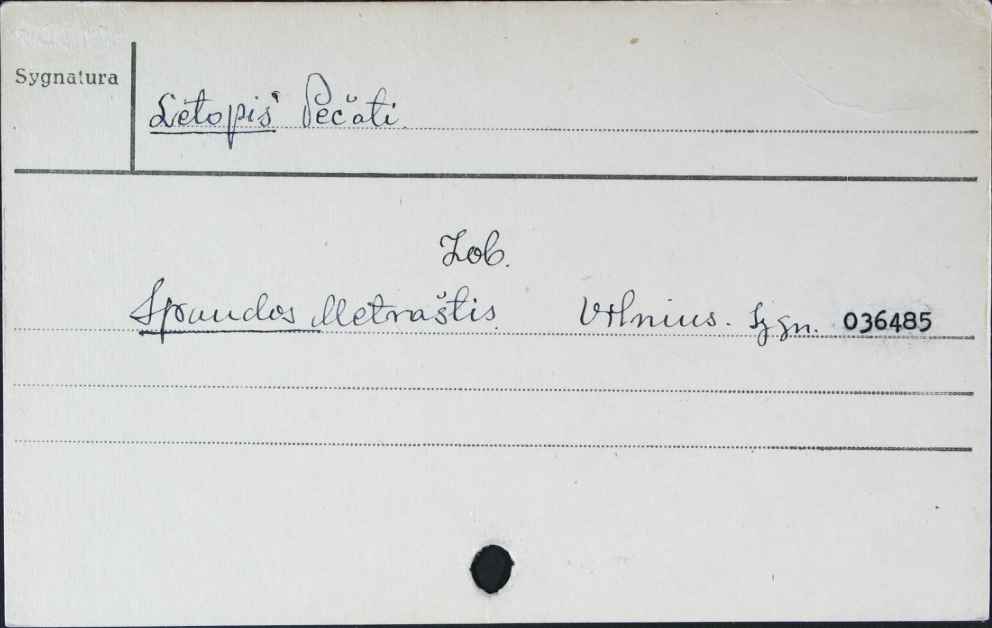 Sygnatura
Letopis' Pečati.
Zob.
Spaudos Metraštis. Vilnius. Sygn. 036485